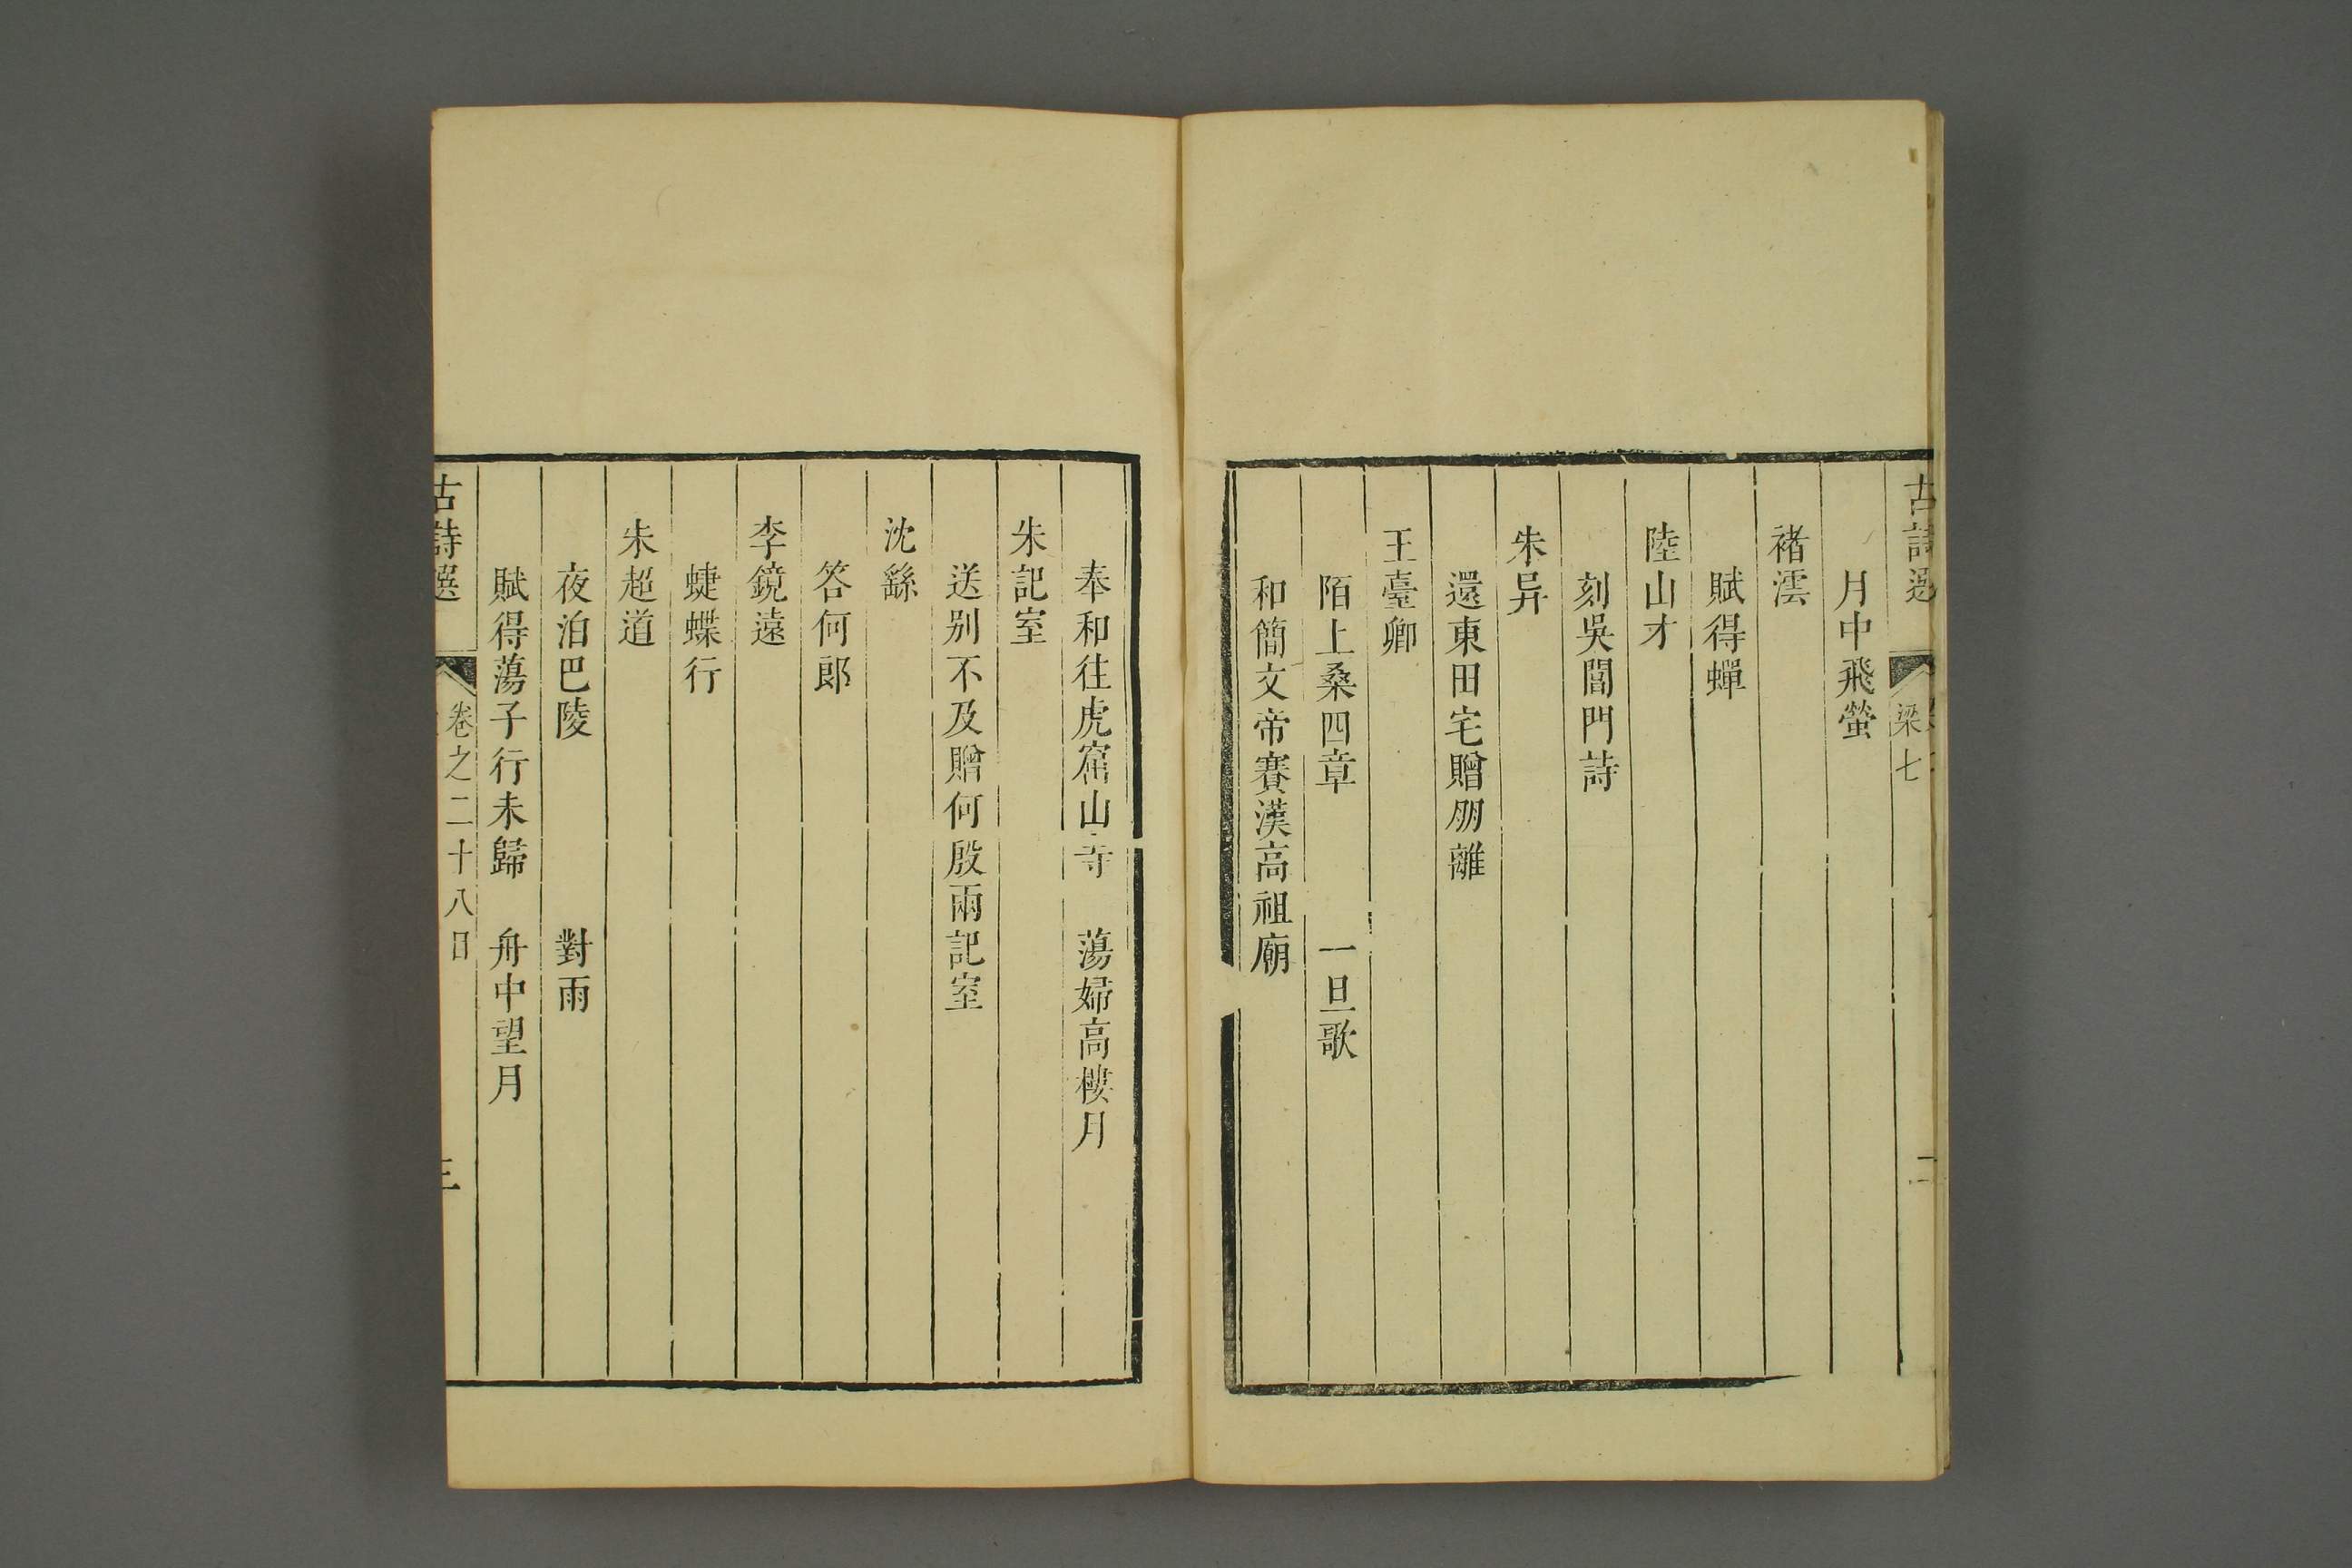 古詩選
梁七
二
月中飛螢
褚澐
賦得蟬
陸山才
刻吳閶門詩
朱异
還東田宅贈朋離
王臺卿
陌上桑四章 一旦歌
和簡文帝賽漢高祖廟
奉和往虎窟山寺 蕩婦高樓月
朱記室
送别不及贈何殷兩記室
沈繇
答何郎
李鏡遠
蜨蝶行
朱超道
夜泊巴陵 對雨
賦得蕩子行未歸 舟中望月
古詩選
卷之二十八目
三